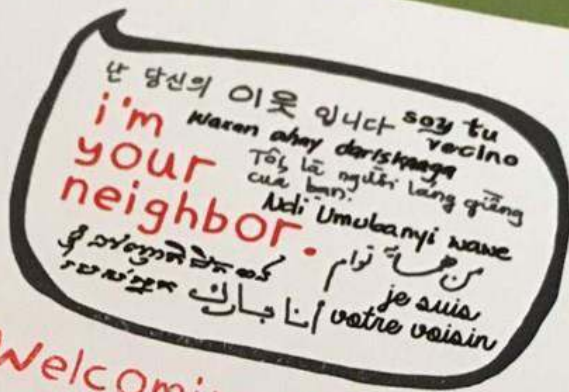 난 당신의 이웃 입니다
soy tu
vecino
i'm
your
neighbor.
Waxan ahay dariskaaga
Tôi là người láng giềng
của bạn.
Ndi Umubanyi wawe
من همسایه توام
أنا جارك
je suis
votre voisin
Welcomi